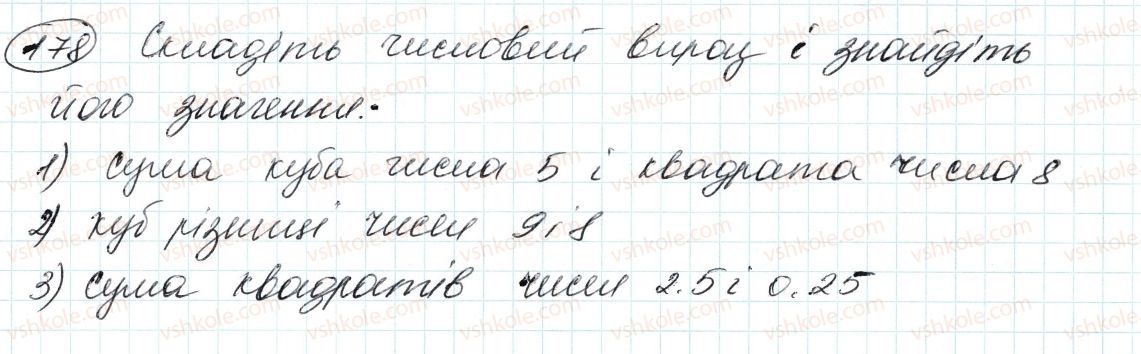 178 Складіть числовий вираз і знайдіть
його значення.
1) сума куба числа 5 і квадрата числа 8
2) куб різниці чисел 9 і 8
3) сума квадратів чисел 2.5 і 0.25